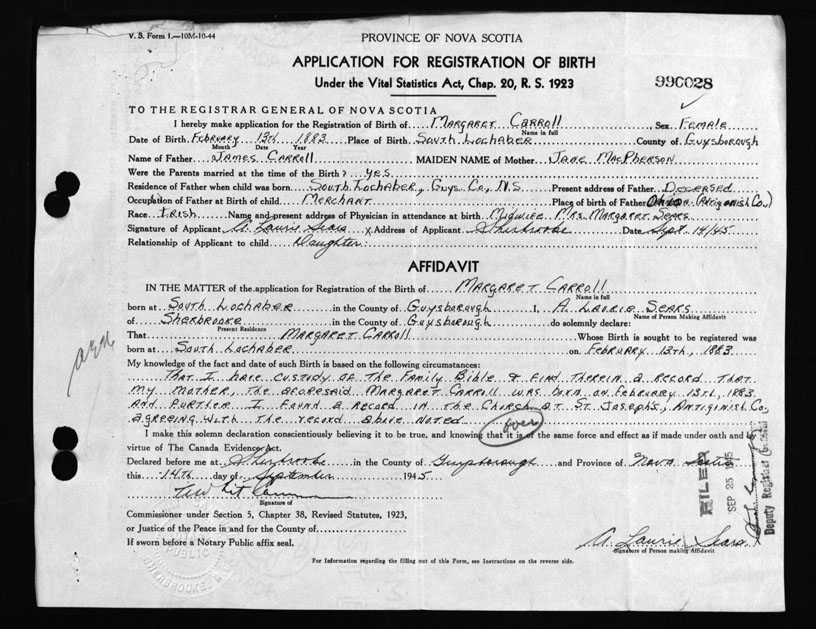 V. S. Form 1.—10M-10-44
PROVINCE OF NOVA SCOTIA
APPLICATION FOR REGISTRATION OF BIRTH
Under the Vital Statistics Act, Chap. 20, R. S. 1923
990028
TO THE REGISTRAR GENERAL OF NOVA SCOTIA
I hereby make application for the Registration of Birth of MARGARET CARROLL Sex FEMALE
Name in full
Date of Birth FEBRUARY 13TH 1883 Place of Birth SOUTH LOCHABER County of GUYSBOROUGH
Month Date Year
Name of Father JAMES CARROLL MAIDEN NAME of Mother JANE MACPHERSON
Were the Parents married at the time of the Birth? YES
Residence of Father when child was born SOUTH LOCHABER, GUYS. CO., N.S. Present address of Father DECEASED
Occupation of Father at Birth of child MERCHANT Place of birth of Father (ANTIGONISH CO.)
Race IRISH Name and present address of Physician in attendance at birth MIDWIFE MRS. MARGARET SEARS
Signature of Applicant A. Laurie Sears X Address of Applicant Sherbrooke Date Sept. 14/45
Relationship of Applicant to child Daughter
AFFIDAVIT
IN THE MATTER of the application for Registration of the Birth of MARGARET CARROLL
Name in full
born at SOUTH LOCHABER in the County of GUYSBOROUGH I, A. LAURIE SEARS
Name of Person Making Affidavit
of SHERBROOKE in the County of GUYSBOROUGH do solemnly declare:
Present Residence
That MARGARET CARROLL Whose Birth is sought to be registered was
born at SOUTH LOCHABER on FEBRUARY 13TH, 1883
My knowledge of the fact and date of such Birth is based on the following circumstances:
THAT I HAVE CUSTODY OF THE FAMILY BIBLE & FIND THEREIN A RECORD THAT
MY MOTHER, THE AFORESAID MARGARET CARROLL WAS BORN ON FEBRUARY 13TH, 1883
AND FURTHER I FOUND A RECORD IN THE CHURCH AT ST. JOSEPH'S, ANTIGONISH CO.,
AGREEING WITH THE RECORD ABOVE NOTED.
over
I make this solemn declaration conscientiously believing it to be true, and knowing that it is of the same force and effect as if made under oath and by
virtue of The Canada Evidence Act.
Declared before me at Sherbrooke in the County of Guysborough and Province of Nova Scotia
this 14TH day of September 1945
Signature of
Commissioner under Section 5, Chapter 38, Revised Statutes, 1923,
or Justice of the Peace in and for the County of
If sworn before a Notary Public affix seal.
A. Laurie Sears
Signature of Person making Affidavit
For Information regarding the filling out of this Form, see Instructions on the reverse side.
FILED
SEP 25 1945
Deputy Registrar General
PUBLIC
SHERBROOKE, N.S.